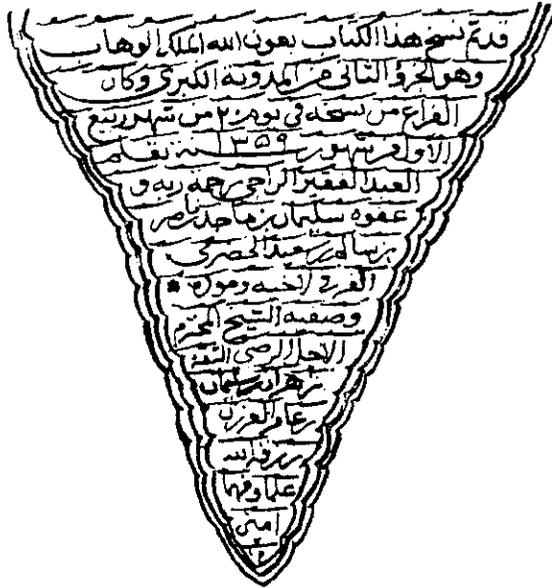 قد تم نسخ هذا الكتاب بعون الله الملك الوهاب
وهو الجزؤ الثاني من المدونة الكبرى وكان
الفراغ من نسخه في يوم ٢٠ من شهر ربيع
الاول من شهور ١٣٥٩ سنة بقلم
العبد الفقير الراجي رحمة ربه و
عفوه سليمان بن ماجد بن ناصر
بن سالم بن عبد الحضرمي
لاخيه
وصفيه الشيخ المحترم
الاجل الرضي الثقة
زهران بن سليمان
بن عامر العزري
رزقه الله
علما وفهما
امين